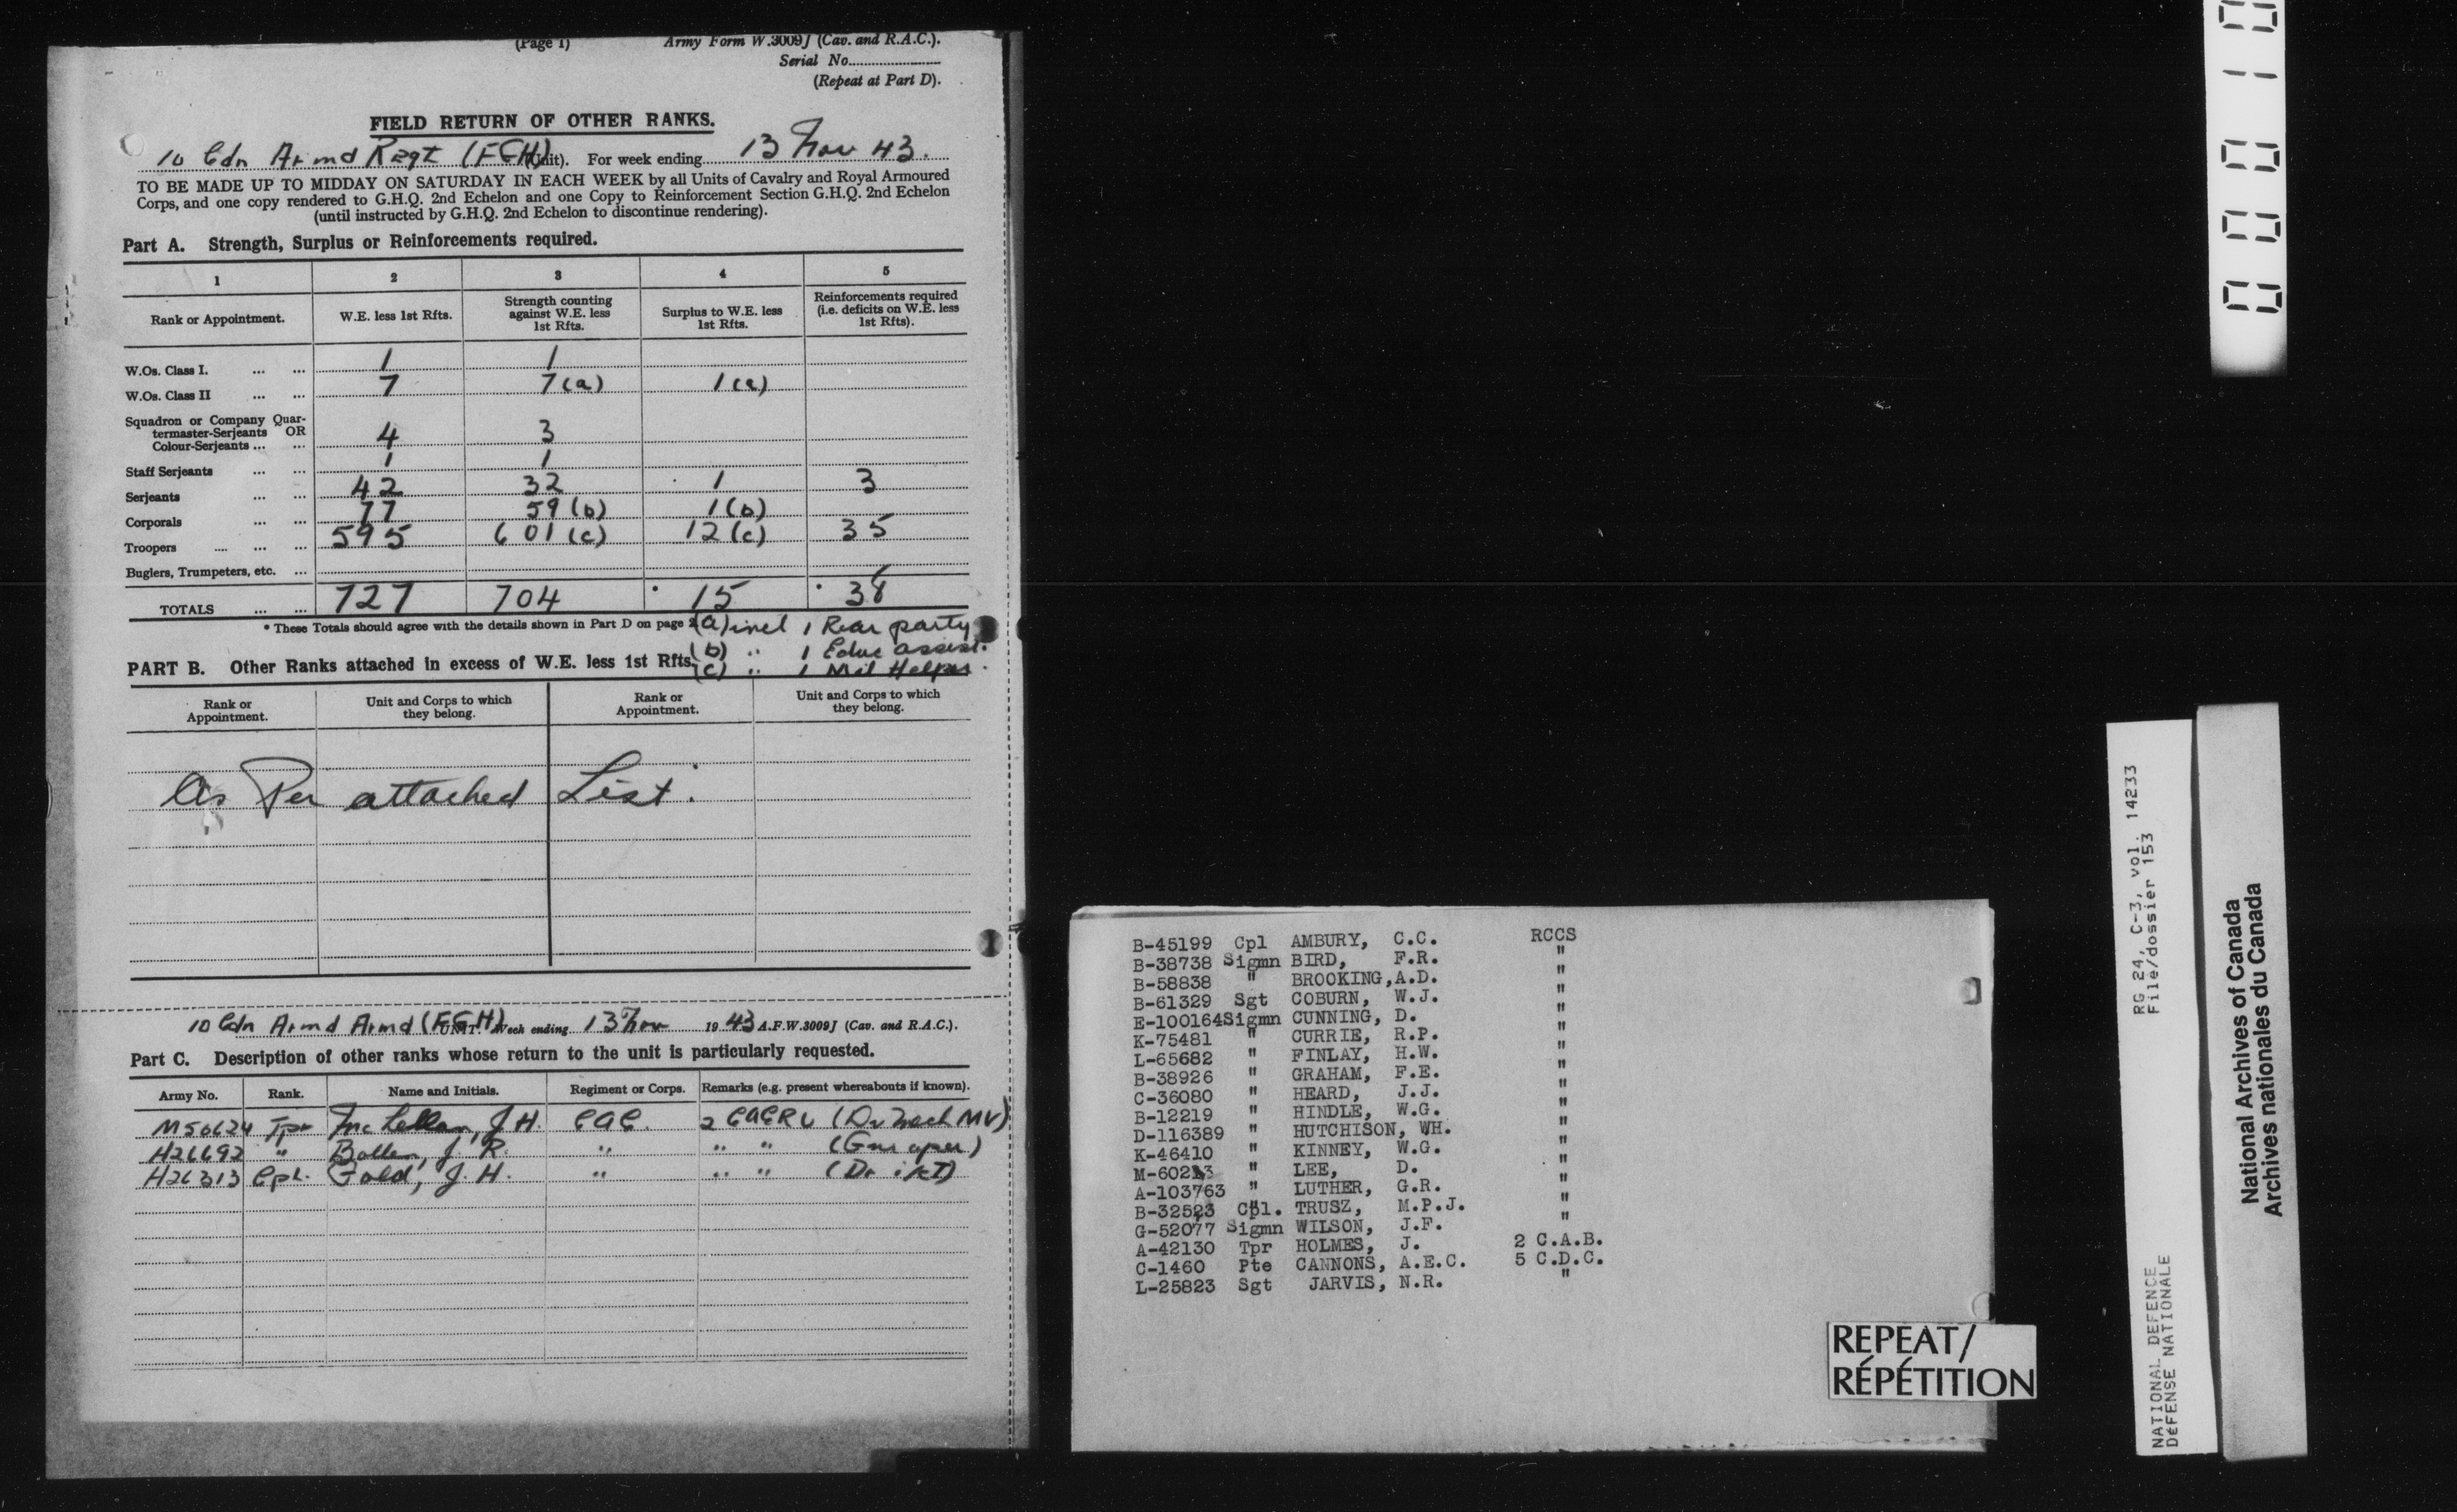 (Page 1) Army Form W.3009J (Cav. and R.A.C.).
Serial No.
(Repeat at Part D).
FIELD RETURN OF OTHER RANKS.
10 Cdn Armd Regt (FGH) (Unit). For week ending 13 Nov 43.
TO BE MADE UP TO MIDDAY ON SATURDAY IN EACH WEEK by all Units of Cavalry and Royal Armoured
Corps, and one copy rendered to G.H.Q. 2nd Echelon and one Copy to Reinforcement Section G.H.Q. 2nd Echelon
(until instructed by G.H.Q. 2nd Echelon to discontinue rendering).
Part A. Strength, Surplus or Reinforcements required.
1 2 3 4 5
Rank or Appointment. W.E. less 1st Rfts. Strength counting against W.E. less 1st Rfts. Surplus to W.E. less 1st Rfts. Reinforcements required (i.e. deficits on W.E. less 1st Rfts).
W.Os. Class I. ... ... 1 1
W.Os. Class II ... ... 7 7(a) 1(a)
Squadron or Company Quar-
termaster-Serjeants OR
Colour-Serjeants ... ... 4 3
Staff Serjeants ... ... 1 1
Serjeants ... ... 42 32 1 3
Corporals ... ... 77 59(b) 1(b)
Troopers .... ... ... 595 601(c) 12(c) 35
Buglers, Trumpeters, etc. ...
TOTALS ... ... 727 704 * 15 * 38
* These Totals should agree with the details shown in Part D on page 2
(a) incl 1 Rear party
(b) " 1 Educ assist.
(c) " 1 Mil Helper.
PART B. Other Ranks attached in excess of W.E. less 1st Rfts.
Rank or Appointment. Unit and Corps to which they belong. Rank or Appointment. Unit and Corps to which they belong.
As Per attached List.
10 Cdn Armd Armd (FGH) UNIT. Week ending 13 Nov 1943 A.F.W.3009J (Cav. and R.A.C.).
Part C. Description of other ranks whose return to the unit is particularly requested.
Army No. Rank. Name and Initials. Regiment or Corps. Remarks (e.g. present whereabouts if known).
M50624 Tpr McLellan, J.H. CAC. 2 CACRU (Dr Mech MV)
H26692 " J.R. " " " (Gnr oper)
H26313 Cpl. J.H. " " "
B-45199 Cpl AMBURY, C.C. RCCS
B-38738 Sigmn BIRD, F.R. "
B-58838 " BROOKING,A.D. "
B-61329 Sgt COBURN, W.J. "
E-100164Sigmn CUNNING, D. "
K-75481 " CURRIE, R.P. "
L-65682 " FINLAY, H.W. "
B-38926 " GRAHAM, F.E. "
C-36080 " HEARD, J.J. "
B-12219 " HINDLE, W.G. "
D-116389 " HUTCHISON, WH. "
K-46410 " KINNEY, W.G. "
M-60213 " LEE, D. "
A-103763 " LUTHER, G.R. "
B-32523 Cpl. TRUSZ, M.P.J. "
G-52077 Sigmn WILSON, J.F. "
A-42130 Tpr HOLMES, J. 2 C.A.B.
C-1460 Pte CANNONS, A.E.C. 5 C.D.C.
L-25823 Sgt JARVIS, N.R. "
REPEAT/
RÉPÉTITION
00010
RG 24, C-3, vol. 14233
File/dossier 153
NATIONAL DEFENCE
DÉFENSE NATIONALE
National Archives of Canada
Archives nationales du Canada